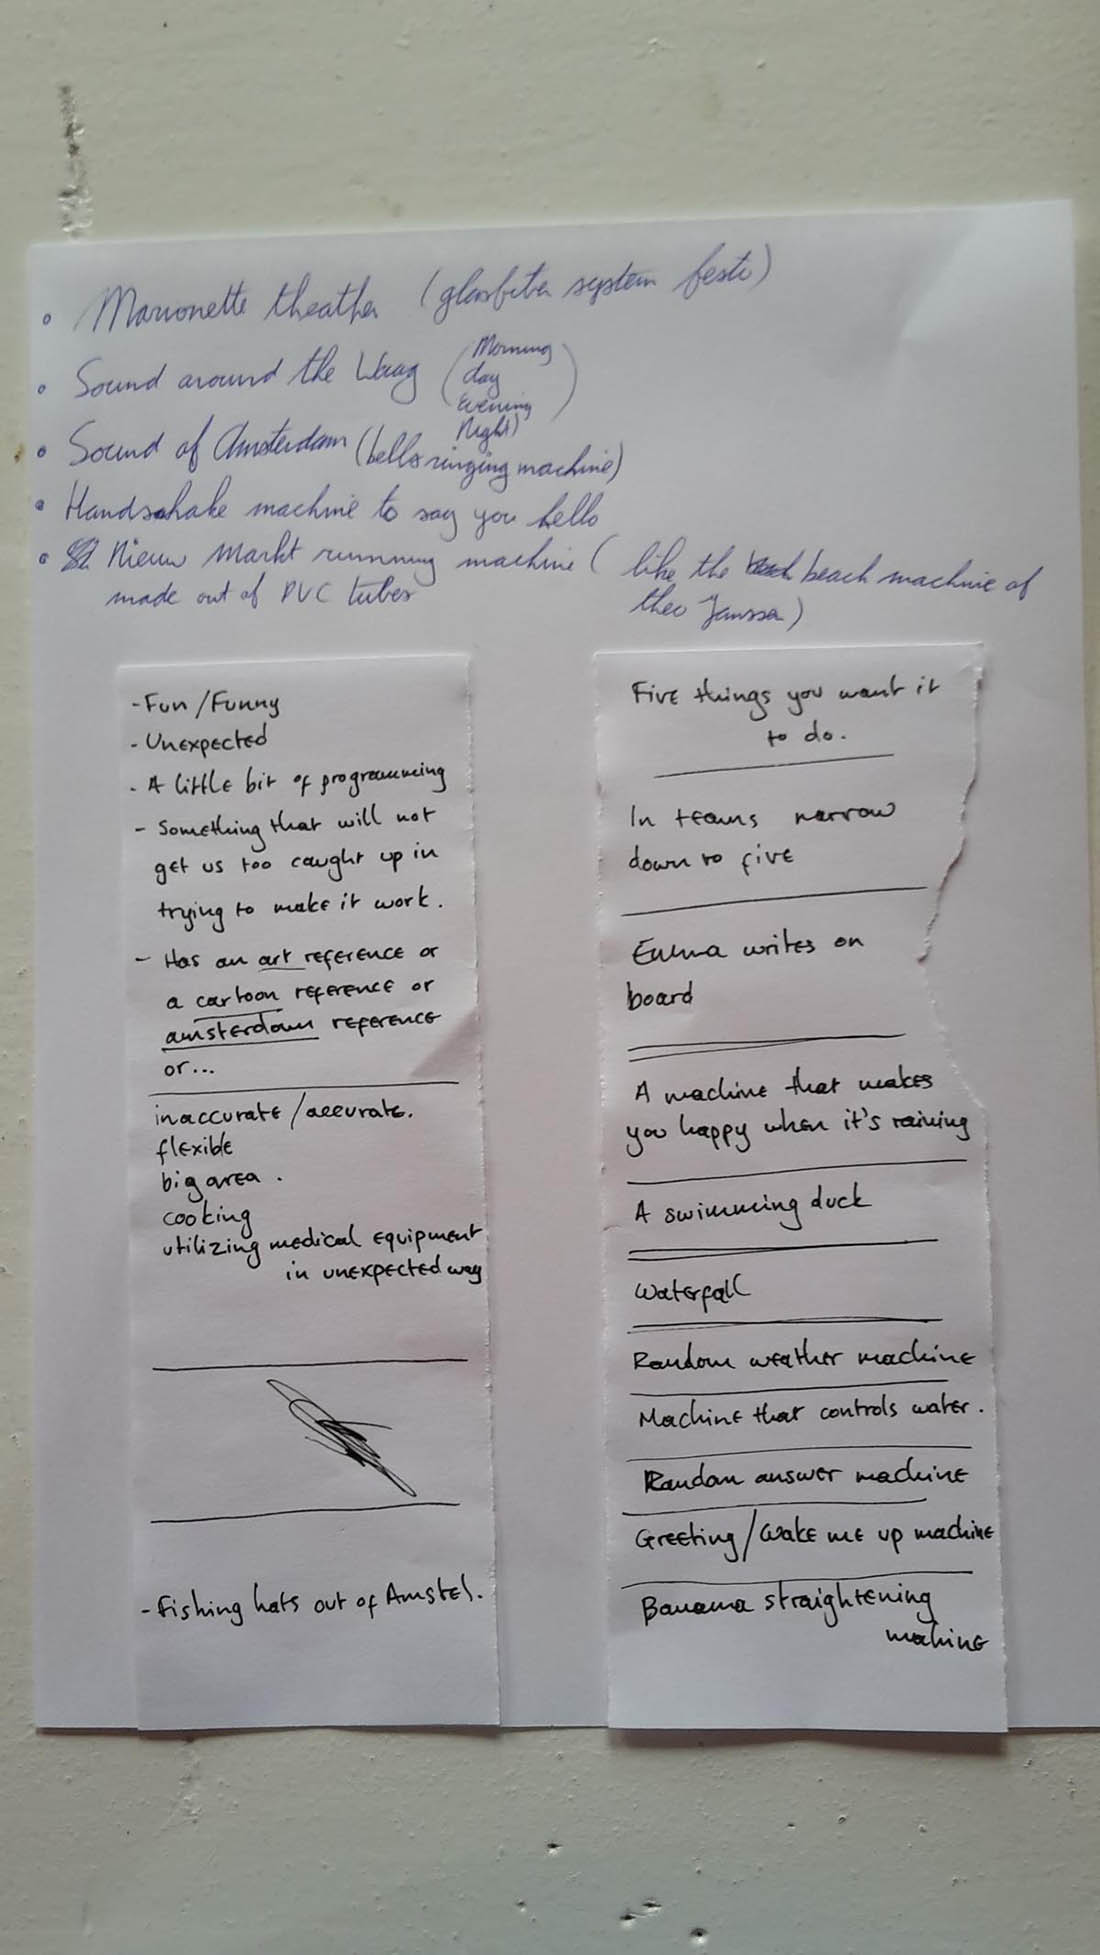 Marionette theather (glasfiber system festo)
Sound around the Waag (Morning
day
Evening
Night)
Sound of Amsterdam (bells ringing machine)
Handshake machine to say you hello
Nieuw Markt running machine ( like the beach machine of
made out of PVC tubes theo Janssen)
- Fun/Funny
- Unexpected
- A little bit of programming
- Something that will not
get us too caught up in
trying to make it work.
- Has an art reference or
a cartoon reference or
amsterdam reference
or...
inaccurate/accurate.
flexible
big area.
cooking
utilizing medical equipment
in unexpected way
- Fishing hats out of Amstel.
Five things you want it
to do.
In teams narrow
down to five
Emma writes on
board
A machine that makes
you happy when it's raining
A swimming duck
Waterfall
Random weather machine
Machine that controls water.
Random answer machine
Greeting/Wake me up machine
Banana straightening
mahine